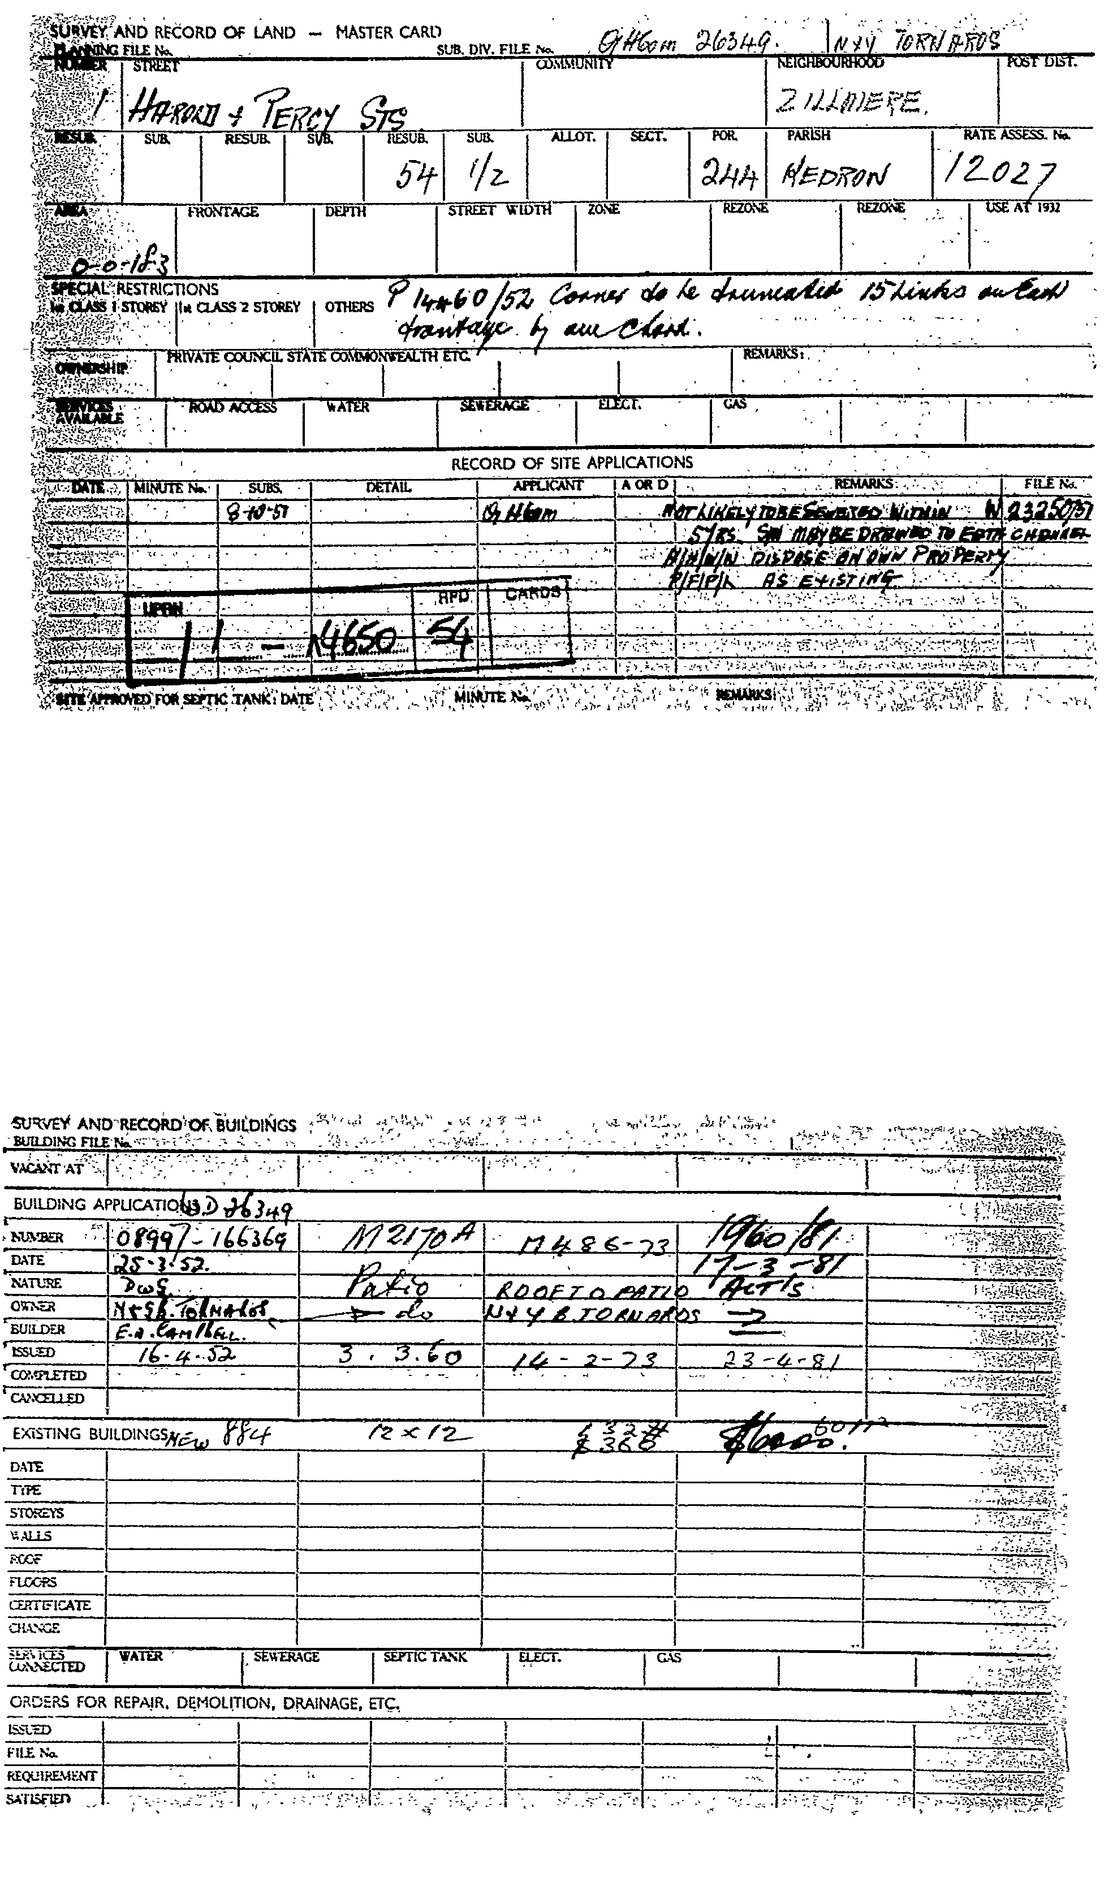 SURVEY AND RECORD OF LAND — MASTER CARD
PLANNING FILE No. SUB. DIV. FILE No. 26349. N & Y TORNAROS
NUMBER STREET COMMUNITY NEIGHBOURHOOD POST DIST.
1 HAROLD & PERCY STS ZILLMERE.
RESUB. SUB. RESUB. SUB. RESUB. SUB. ALLOT. SECT. POR. PARISH RATE ASSESS. No.
54 1/2 244 KEDRON 12027
AREA FRONTAGE DEPTH STREET WIDTH ZONE REZONE REZONE USE AT 1932
0-0-18.3
SPECIAL RESTRICTIONS
1st CLASS 1 STOREY 1st CLASS 2 STOREY OTHERS P 14460/52 Corner to be truncated 15 Links on Each
frontage by one Chord.
OWNERSHIP PRIVATE COUNCIL STATE COMMONWEALTH ETC. REMARKS:
SERVICES AVAILABLE ROAD ACCESS WATER SEWERAGE ELECT. GAS
RECORD OF SITE APPLICATIONS
DATE MINUTE No. SUBS. DETAIL APPLICANT A OR D REMARKS FILE No.
8-10-51 NOT LIKELY TO BE SEWERED WITHIN W 23250/51
5 YRS. SW MAY BE DRAINED TO EARTH CHANNEL
H/H/W/W DISPOSE ON OWN PROPERTY
P/F/P/L AS EXISTING
UPRN RPD CARDS
11 - 14650 54
SITE APPROVED FOR SEPTIC TANK: DATE MINUTE No. REMARKS:
SURVEY AND RECORD OF BUILDINGS
BUILDING FILE No.
VACANT AT
BUILDING APPLICATIONS D 26349
NUMBER 08997-166369 M2170A M486-73 1960/81
DATE 25-3-52. 17-3-81
NATURE Dwg Patio ROOF TO PATIO ALT'S
OWNER do N & Y B. TORNAROS
BUILDER E.A. CAMPBELL.
ISSUED 16-4-52 3.3.60 14-2-73 23-4-81
COMPLETED
CANCELLED
EXISTING BUILDINGS NEW 884 12 x 12 $360 $6000.
DATE
TYPE
STOREYS
WALLS
ROOF
FLOORS
CERTIFICATE
CHANGE
SERVICES CONNECTED WATER SEWERAGE SEPTIC TANK ELECT. GAS
ORDERS FOR REPAIR, DEMOLITION, DRAINAGE, ETC.
ISSUED
FILE No.
REQUIREMENT
SATISFIED